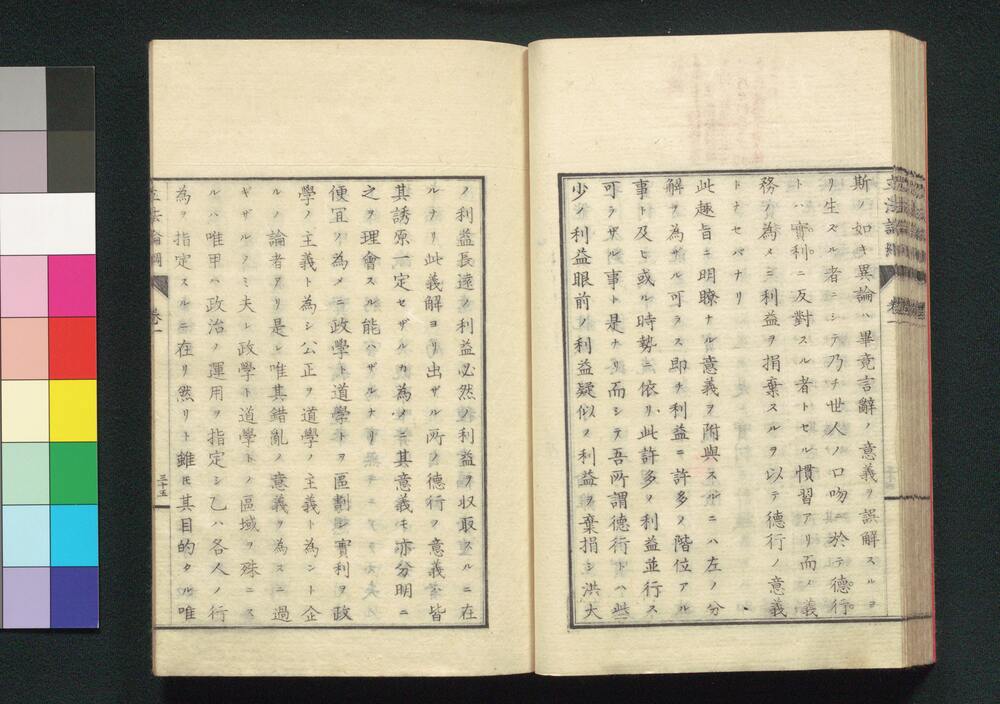 斯ノ如キ異論ハ畢竟言辭ノ意義ヲ誤解スルヨ
リ生ズル者ニシテ乃チ世人ノ口吻ニ於テ德行
トハ實利ニ反對スル者トセル慣習アリ而メ義
務ノ為メニ利益ヲ捐棄スルヲ以テ德行ノ意義
トナセバナリ
此趣旨ニ明瞭ナル意義ヲ附與スルニハ左ノ分
解ヲ為サヾル可ラス即チ利益ニ許多ノ階位アル
事ト及ヒ或ル時勢ニ依リ此許多ノ利益並行ス
可ラザル事ト是ナリ而シテ吾所謂德行トハ些
少ノ利益眼前ノ利益疑似ノ利益ヲ棄捐シ洪大
ノ利益長遠ノ利益必然ノ利益ヲ収取スルニ在
ルナリ此義解ヨリ出ザル所ノ德行ヲ意義ハ皆
其誘原一定セザルカ為メニ其意義モ亦分明ニ
之ヲ理會スル能ハザルナリ
便冝ノ為メニ政學ト道學トヲ區劃シ實利ヲ政
學ノ主義ト為シ公正ヲ道學ノ主義ト為ント企
ルノ論者アリ是レ唯其錯亂ノ意義ヲ為スニ過
ギザルノミ夫レ政學ト道學トノ區域ヲ殊ニス
ルハ唯甲ハ政治ノ運用ヲ指定シ乙ハ各人ノ行
為ヲ指定スルニ在リ然リト雖モ其目的タル唯
立法論綱
卷一
三十五